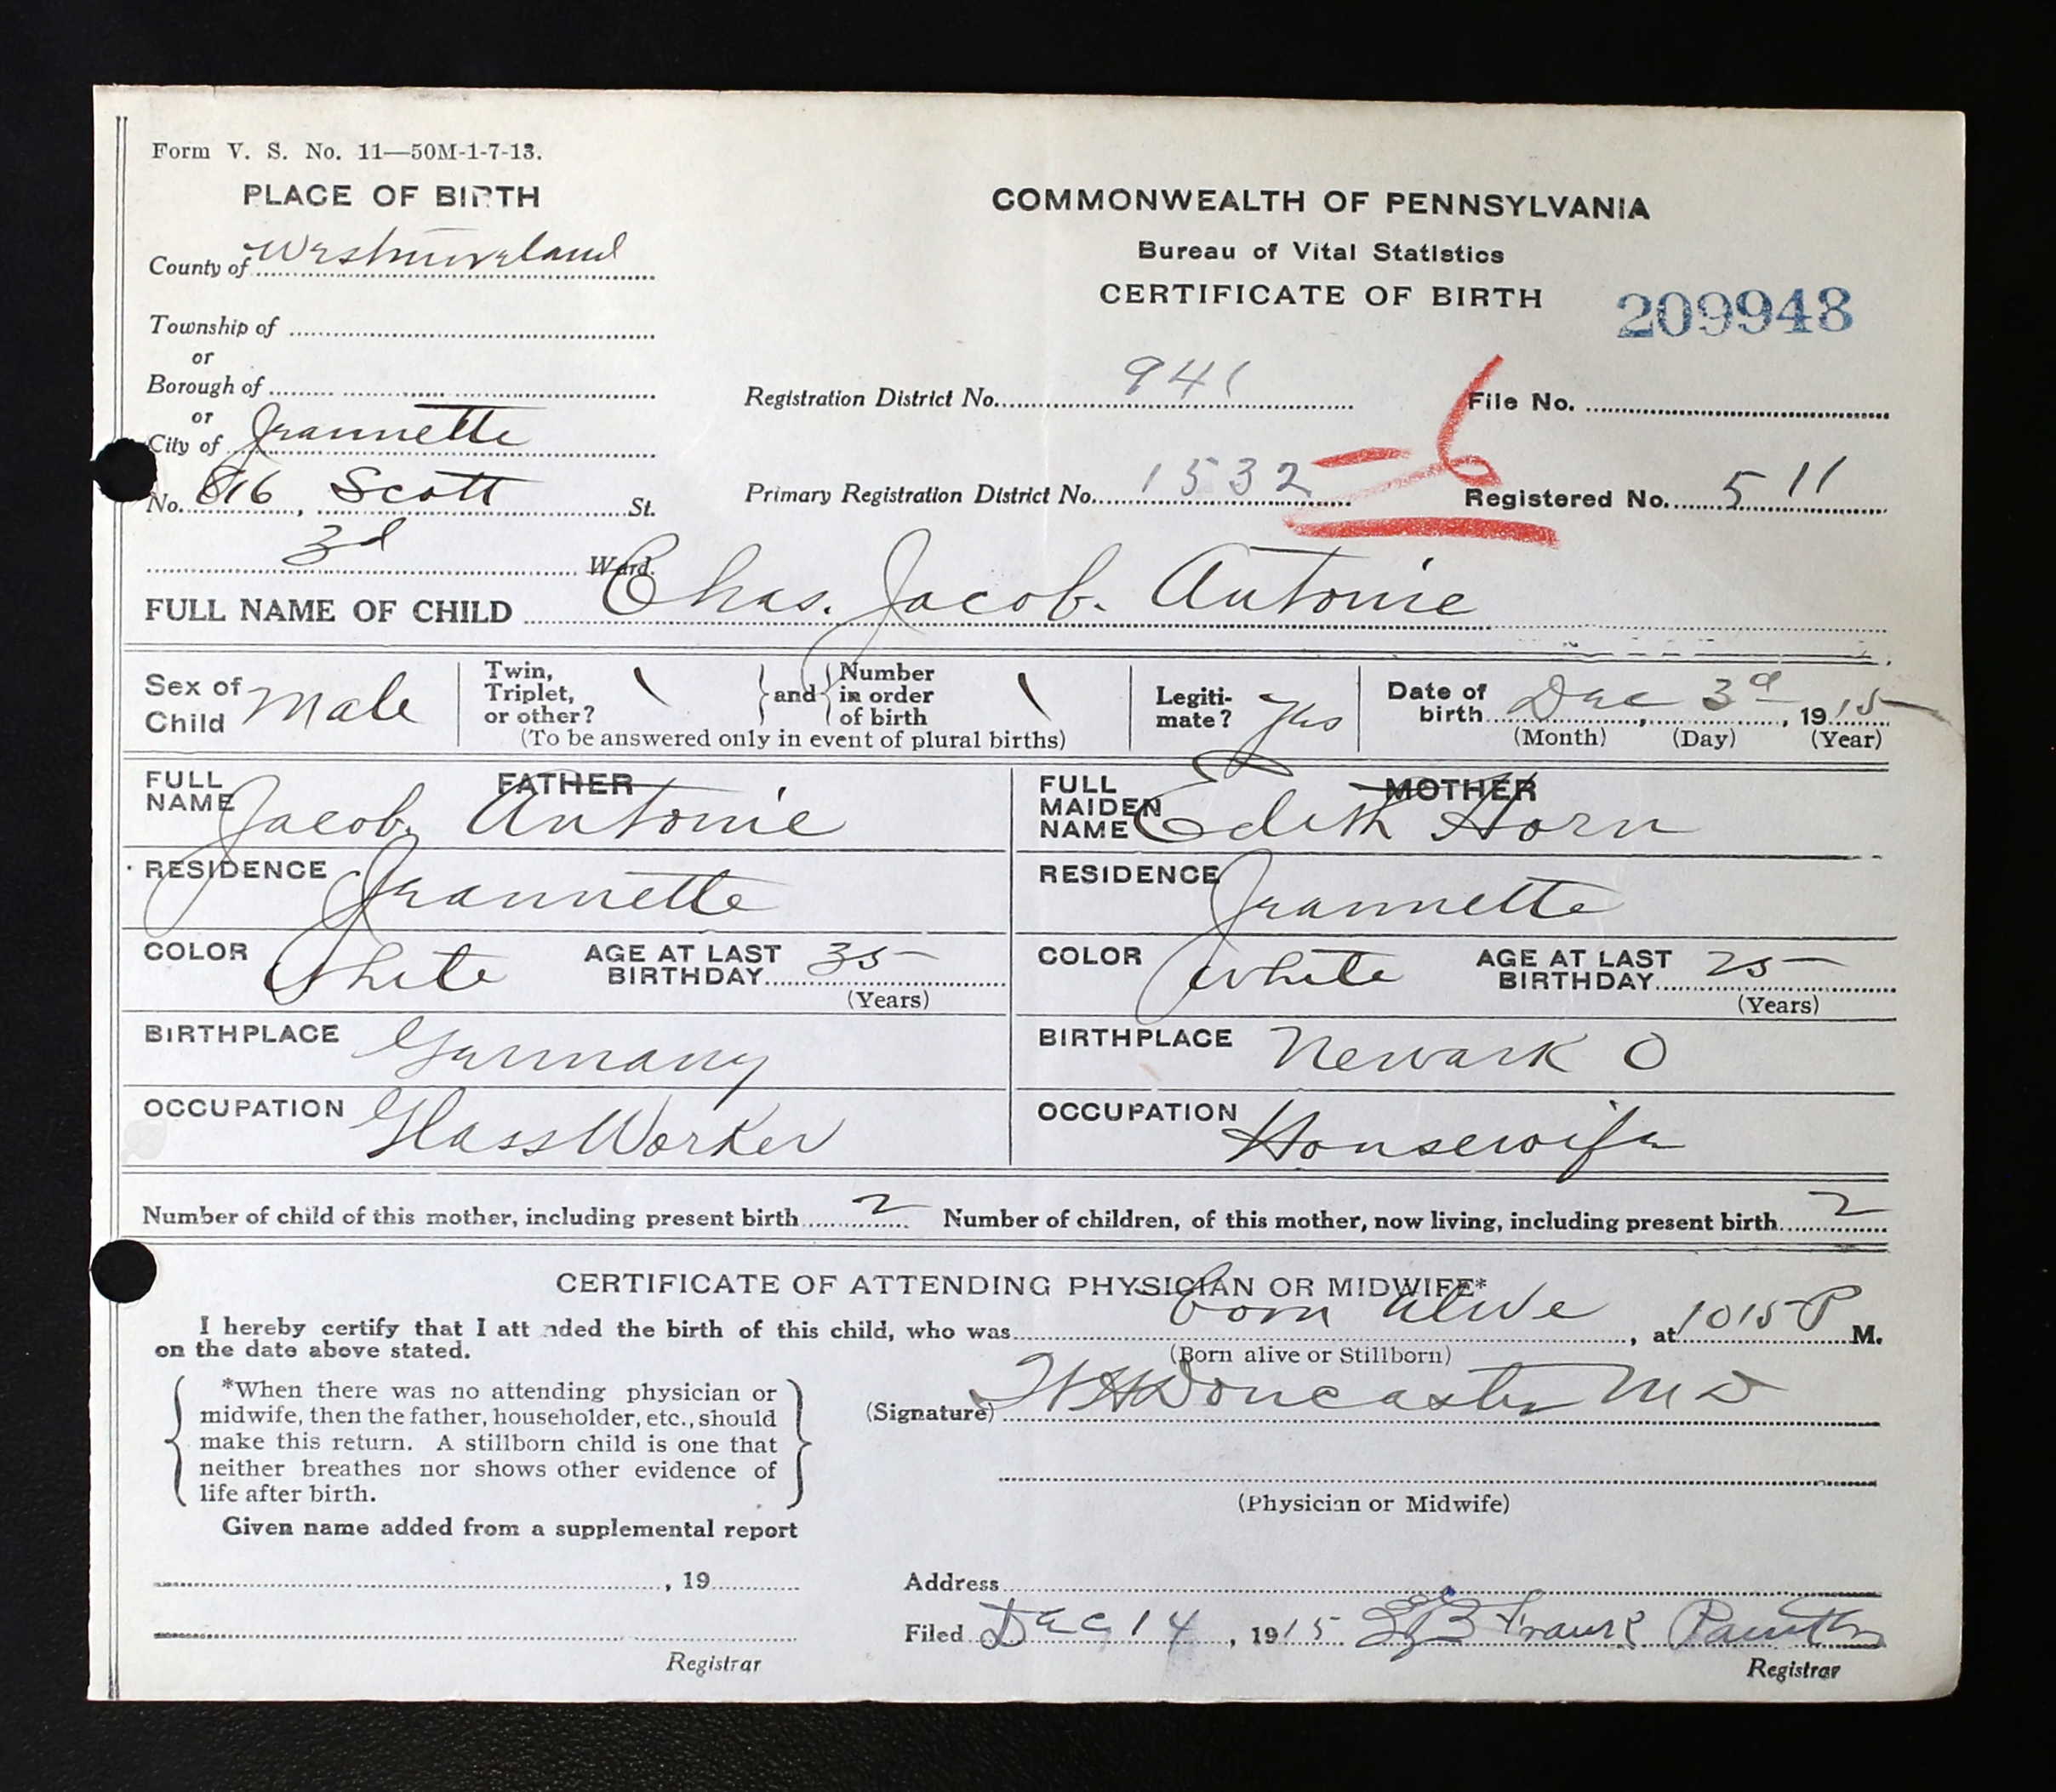 Form V. S. No. 11—50M-1-7-13.
PLACE OF BIRTH
County of Westmoreland
Township of
or
Borough of
or
City of Jeannette
No. 816, Scott St.
3d Ward.
COMMONWEALTH OF PENNSYLVANIA
Bureau of Vital Statistics
CERTIFICATE OF BIRTH
209948
Registration District No. 941
File No.
Primary Registration District No. 1532 - 6
Registered No. 511
FULL NAME OF CHILD Chas. Jacob. Antonie
Sex of Child Male
Twin, Triplet, or other? \ and Number in order of birth \
(To be answered only in event of plural births)
Legitimate? Yes
Date of birth Dec 3d, 1915
(Month) (Day) (Year)
FATHER
FULL NAME Jacob Antonie
RESIDENCE Jeannette
COLOR White AGE AT LAST BIRTHDAY 35
(Years)
BIRTHPLACE Germany
OCCUPATION Glass Worker
MOTHER
FULL MAIDEN NAME Edith Horn
RESIDENCE Jeannette
COLOR White AGE AT LAST BIRTHDAY 25
(Years)
BIRTHPLACE Newark O
OCCUPATION Housewife
Number of child of this mother, including present birth 2 Number of children, of this mother, now living, including present birth 2
CERTIFICATE OF ATTENDING PHYSICIAN OR MIDWIFE*
I hereby certify that I att nded the birth of this child, who was born alive, at 1015 P M.
on the date above stated.
(Born alive or Stillborn)
*When there was no attending physician or
midwife, then the father, householder, etc., should
make this return. A stillborn child is one that
neither breathes nor shows other evidence of
life after birth.
(Signature) W H Doncaster M D
(Physician or Midwife)
Given name added from a supplemental report
, 19
Registrar
Address
Filed Dec 14, 1915 Frank Painter
Registrar